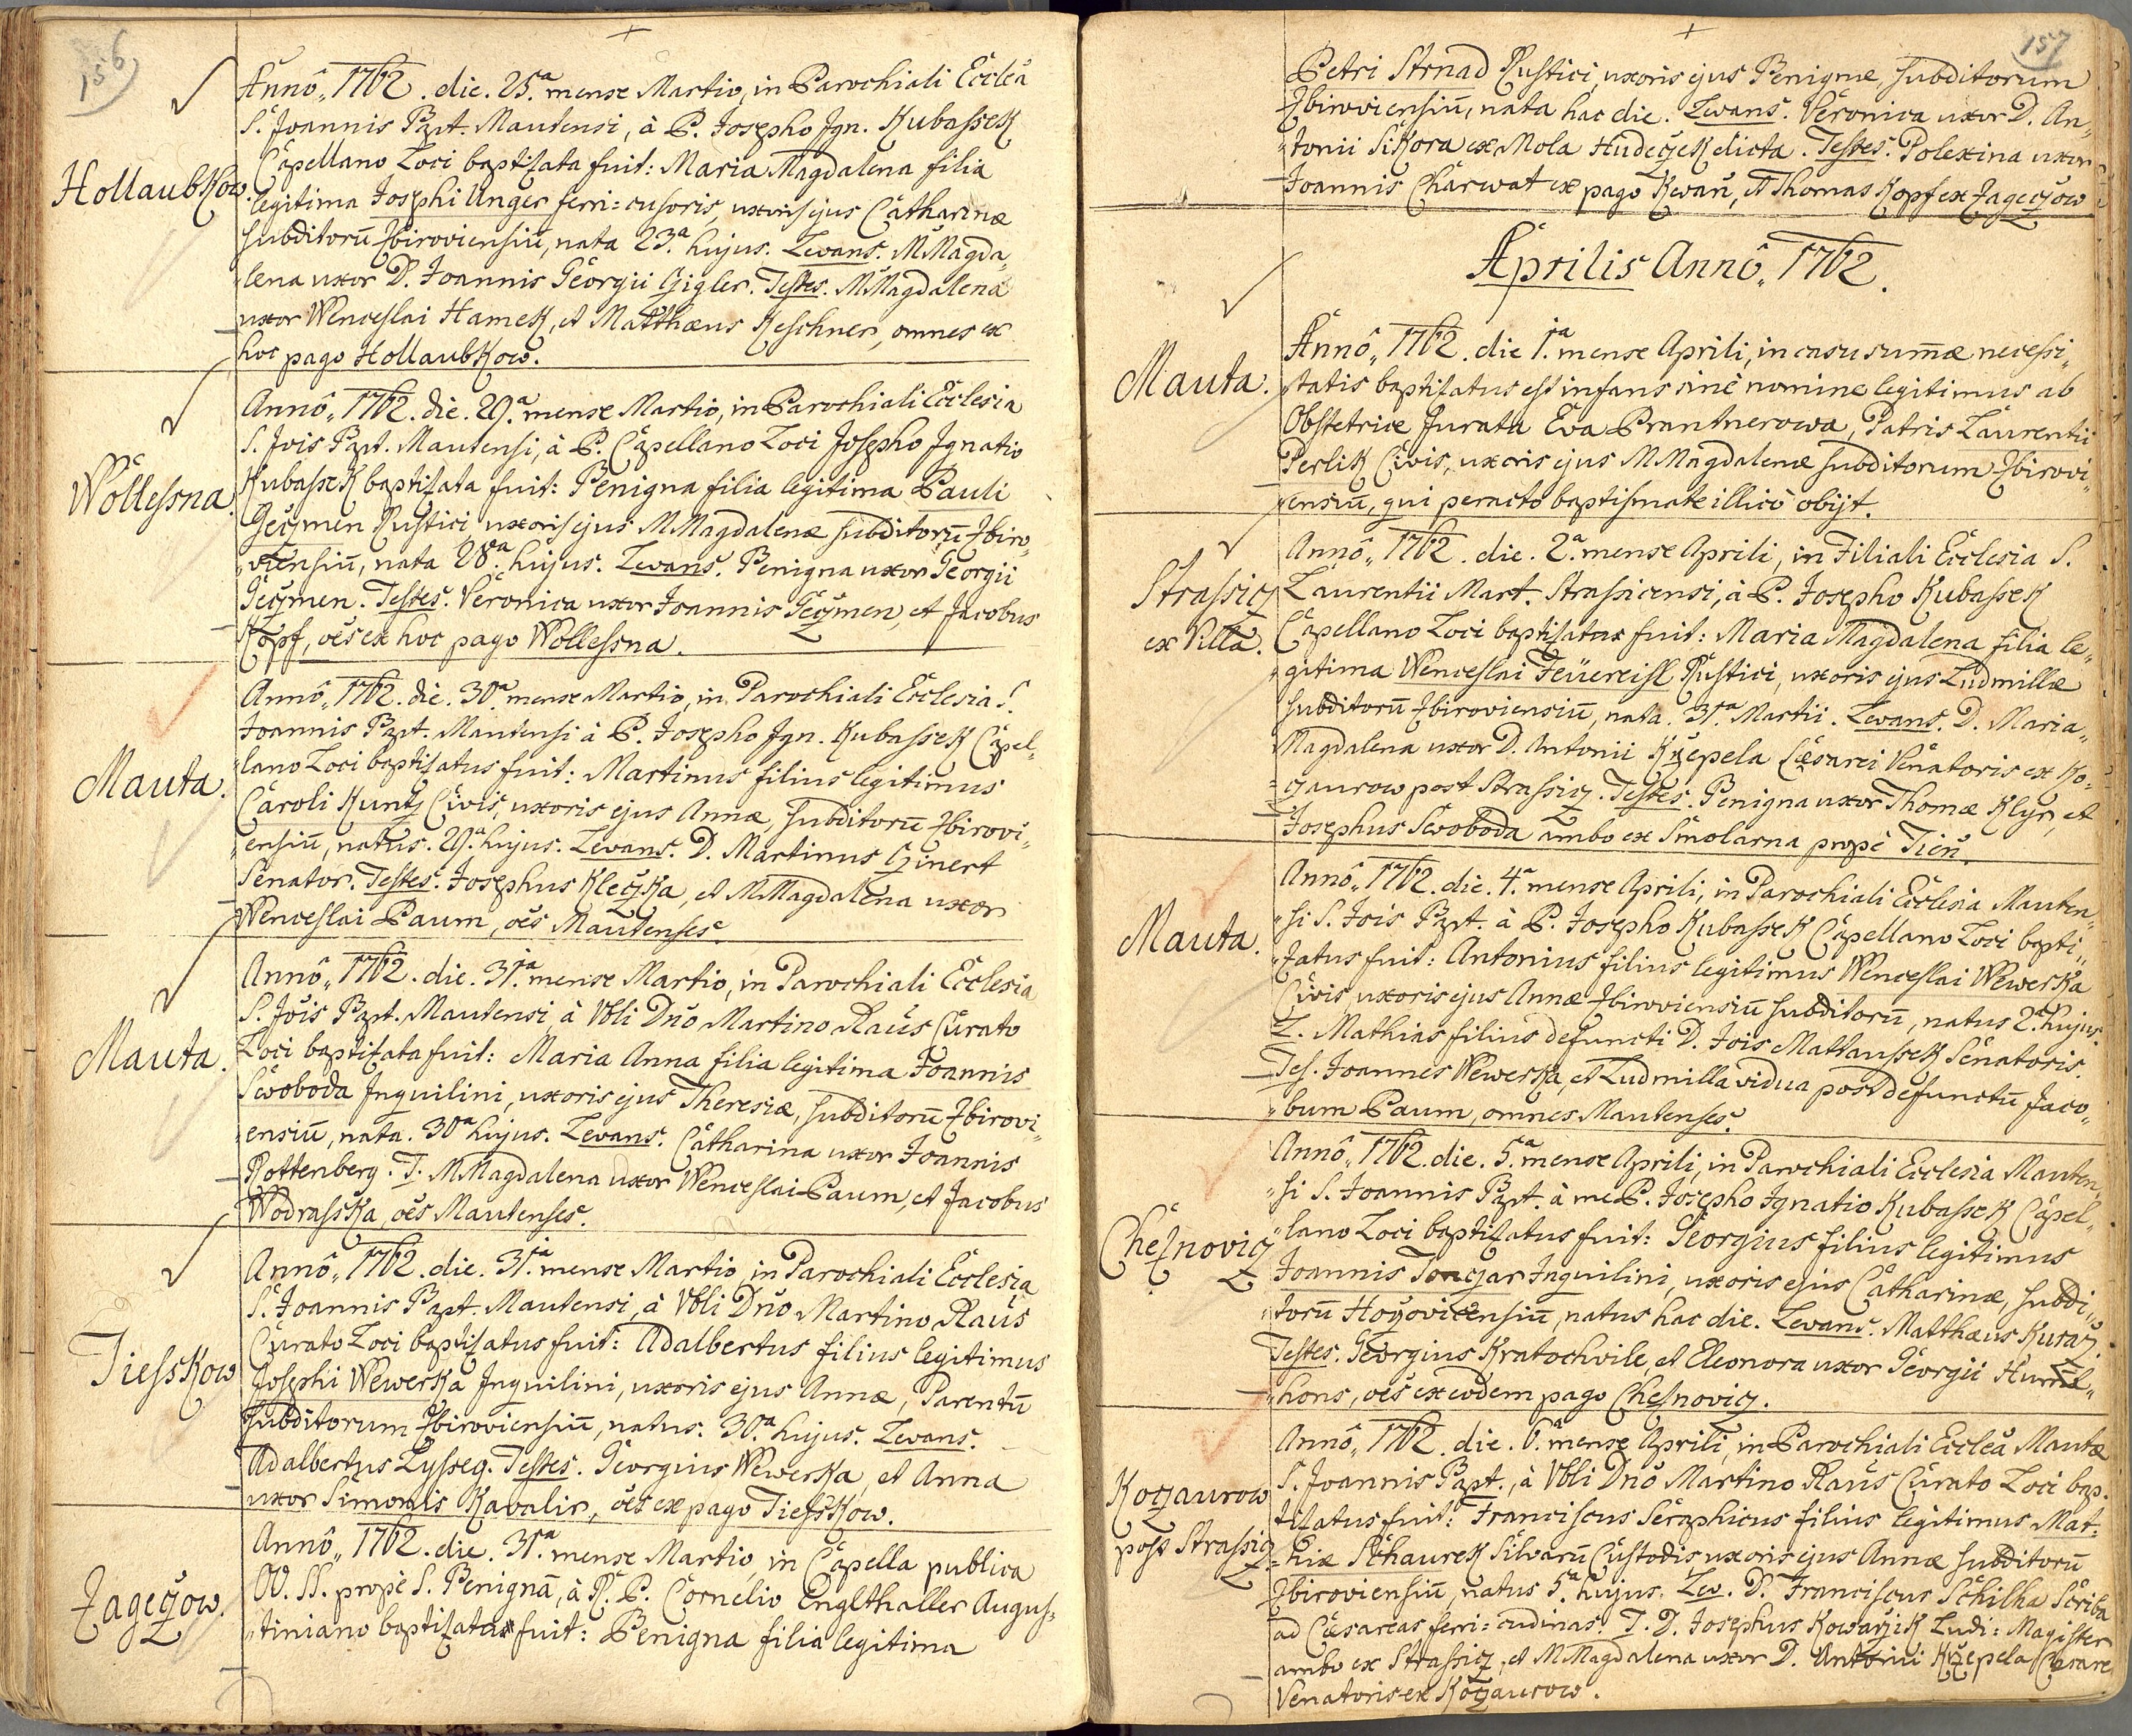 156
Hollaubkow.
Annô„ 1762. die. 25.a mense Martio, in Parochiali Eccleâ
S. Joannis Bapt. Mautensi, à P. Josepho Ign. Kubassek
Capellano Loci baptisata fuit: Maria Magdalena filia
legitima Josephi Unger ferri=cusoris, uxoris ejus Catharinæ
subditorū Zbiroviensiū, nata 23.a hujus. Levans. M Magda„
„lena uxor D. Joannis Georgii Gigler. Testes. M Magdalena
uxor Wenceslai Hamek, et Matthæus Keschner, omnes ex
hoc pago Hollaubkow.
Wollessna.
Annô„ 1762. die. 29.a mense Martio, in Parochiali Ecclesia
S. Jois Bapt. Mautensi, à P. Capellano Loci Josepho Ignatio
Kubassek baptisata fuit: Benigna filia legitima Pauli
Geczmen Rustici, uxoris ejus M Magdalenæ subditorū Zbiro„
„viensiū, nata 28.a hujus. Levans. Benigna uxor Georgii
Geczmen. Testes. Veronica uxor Joannis Geczmen, et Jacobus
Kopf, oēs ex hoc pago Wollessna.
Mauta.
Annô„ 1762. die. 30.a mense Martio, in Parochiali Ecclesia S.
Joannis Bapt. Mautensi à P. Josepho Ign. Kubassek Capel„
„lano Loci baptisatus fuit: Martinus filius legitimus
Caroli Kuntz Civis, uxoris ejus Annæ, subditorū Zbirovi„
„ensiū, natus. 29.a hujus. Levans. D. Martinus Ginert
Senator. Testes. Josephus Kleczka, et M Magdalena uxor
Wenceslai Paum, oēs Mautenses.
Mauta.
Annô„ 1762. die. 31.a mense Martio, in Parochiali Ecclesia
S. Jois Bapt. Mautensi, à Vbli Dno Martino Raus Curato
Loci baptisata fuit: Maria Anna filia legitima Joannis
Swoboda Inquilini, uxoris ejus Theresiæ, subditorū Zbirovi„
„ensiū, nata. 30.a hujus. Levans. Catharina uxor Joannis
Rottenberg. T. M Magdalena uxor Wenceslai Paum, et Jacobus
Wodrasska, oēs Mautenses.
Tiesskow
Annô„ 1762. die. 31.a mense Martio, in Parochiali Ecclesia
S. Joannis Bapt. Mautensi, à Vbli Dno Martino Raus
Curato Loci baptisatus fuit: Adalbertus filius legitimus
Josephi Wewerka Inquilini, uxoris ejus Annæ, Parentū
subditorum Zbiroviensiū, natus. 30.a hujus. Levans.
Adalbertus Lysseg. Testes. Georgius Wewerka, et Anna
uxor Simonis Kavalir, oēs ex pago Tiesskow.
Zageczow.
Annô„ 1762. die. 31.a mense Martio, in Capella publica
OO. SS. propè S. Benignā, à R. P. Cornelio Englthaller Augus„
„tiniano baptisata fuit: Benigna filia legitima
157
Petri Strnad Rustici, uxoris ejus Benignæ, subditorum
Zbiroviensiū, nata hac die. Levans. Veronica uxor D. An„
„tonii Sikora ex Mola Hudeczek dicta. Testes. Polexina uxor
Joannis Charwat ex pago Kwan, et Thomas Kopf ex Zageczow
Aprilis Annô„ 1762.
Mauta.
Annô„ 1762. die 1.a mense Aprili, in casu sum̄æ necessi„
„tatis baptisatus est infans sinè nomine legitimus ab
Obstetrice Jurata Eva Brantnerowa, Patris Laurentii
Perlik Civis, uxoris ejus M Magdalenæ subditorum Zbirovi„
„ensiū, qui peracto baptismate illicò obijt.
Strassicz
ex Villa.
Annô„ 1762. die. 2.a mense Aprili, in Filiali Ecclesia S.
Laurentii Mart. Strassicensi, à P. Josepho Kubassek
Capellano Loci baptisata fuit: Maria Magdalena filia le„
„gitima Wenceslai Feüereisl Rustici, uxoris ejus Ludmillæ
subditorū Zbiroviensiū, nata. 31.a Martii. Levans. D. Maria„
Magdalena uxor D. Antonii Krzepela Cæsarei Venatoris ex Ko„
„czaurow post Strassicz. Testes. Benigna uxor Thomæ Klyr, et
Josephus Swoboda ambo ex Smolarna propè Tien.
Mauta.
Annô„ 1762. die. 4.a mense Aprili, in Parochiali Ecclesia Mauten„
„si S. Jois Bapt. à P. Josepho Kubassek Capellano Loci bapti„
„satus fuit: Antonius filius legitimus Wenceslai Wewerka
Civis, uxoris ejus Annæ Zbiroviensiū subditorū, natus 2.a hujus.
L. Mathias filius defuncti D. Jois Mattaussek Senatoris.
Tes. Joannes Wewerka, et Ludmilla vidua post defunctū Jaco„
„bum Paum, omnes Mautenses.
Chesnovicz
Annô„ 1762. die. 5.a mense Aprili, in Parochiali Ecclesia Mauten„
„si S. Joannis Bapt. à me P. Josepho Ignatio Kubassek Capel„
„lano Loci baptisatus fuit: Georgius filius legitimus
Joannis Tonczar Inquilini, uxoris ejus Catharinæ, subdi„
„torū Hozovicensiū, natus hac die. Levans. Matthæus Kuraz.
Testes. Georgius Kratochwile, et Eleonora uxor Georgii Humel„
„hons, oēs ex eodem pago Chesnovicz.
Koczaurow
post Strassicz
Annô„ 1762. die. 6.a mense Aprili, in Parochiali Eccleâ Mautæ
S. Joannis Bapt., à Vbli Dno Martino Raus Curato Loci bap„
tisatus fuit: Franciscus Seraphicus filius legitimus Mat„
„hiæ Schaurek Silvarū Custodis uxoris ejus Annæ subditorū
Zbiroviensiū, natus 5.a hujus. Lev. D. Franciscus Schilha Scriba
ad Cæsareas ferri=cudinas. T. D. Josephus Kowarzik Ludi=Magister
ambo ex Strassicz, et M Magdalena uxor D. Antonii Krzepela Cæsare
Venatoris ex Koczaurow.